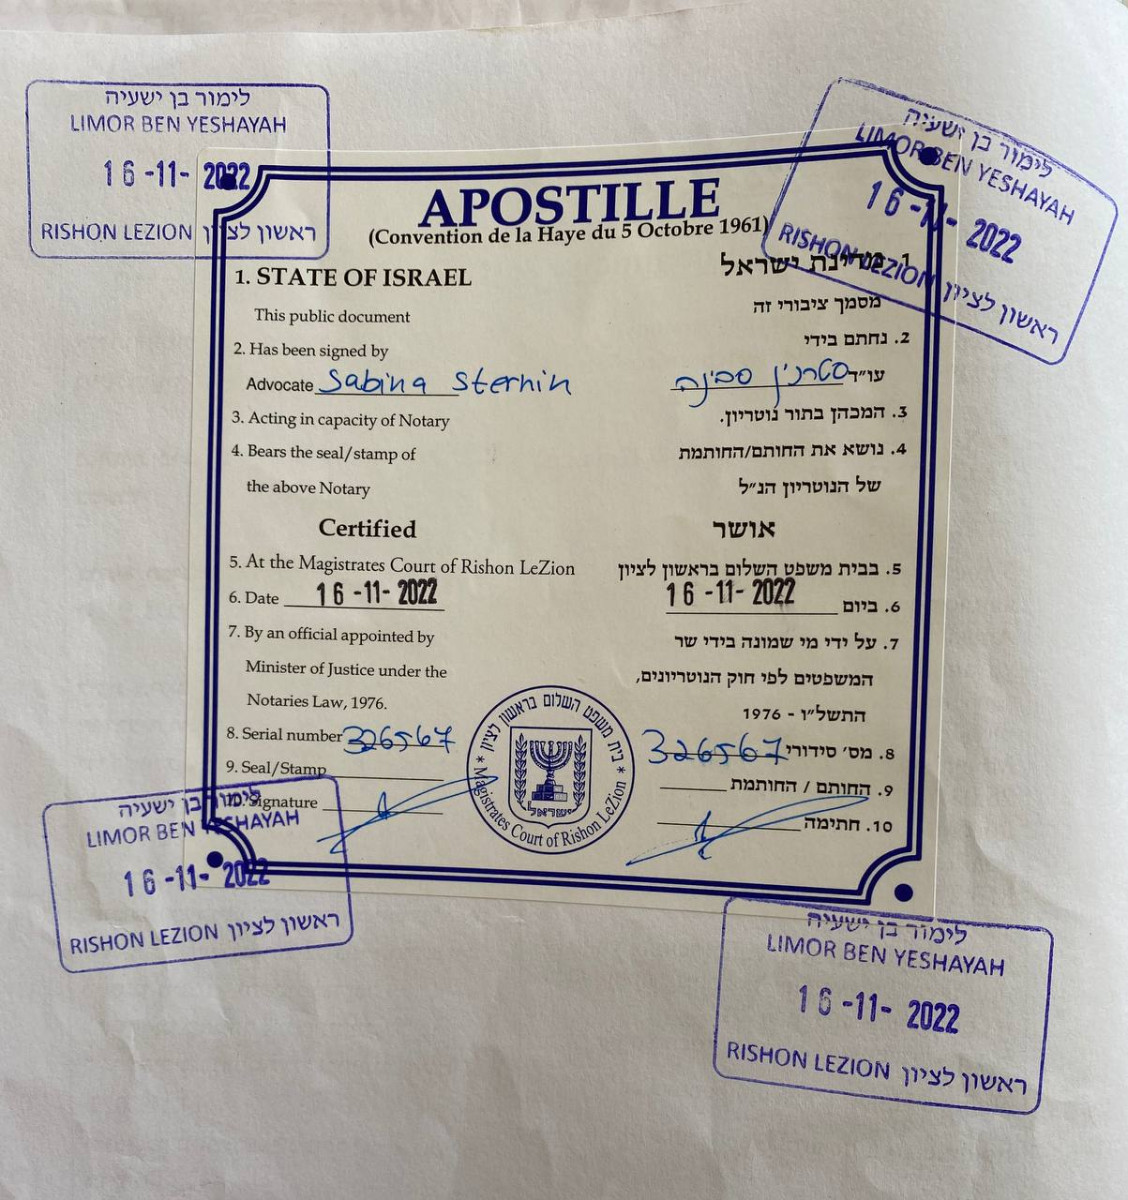 לימור בן ישעיה
LIMOR BEN YESHAYAH
16-11-2022
RISHON LEZION ראשון לציון
לימור בן ישעיה
LIMOR BEN YESHAYAH
16-11-2022
RISHON LEZION ראשון לציון
APOSTILLE
(Convention de la Haye du 5 Octobre 1961)
1. STATE OF ISRAEL
This public document
2. Has been signed by
Advocate Sabina Sternin
3. Acting in capacity of Notary
4. Bears the seal/stamp of
the above Notary
Certified
5. At the Magistrates Court of Rishon LeZion
6. Date 16-11-2022
7. By an official appointed by
Minister of Justice under the
Notaries Law, 1976.
8. Serial number 326567
9. Seal/Stamp
10. Signature
1. מדינת ישראל
מסמך ציבורי זה
2. נחתם בידי
עו"ד סטרנין סבינה
3. המכהן בתור נוטריון.
4. נושא את החותם/החותמת
של הנוטריון הנ"ל
אושר
5. בבית משפט השלום בראשון לציון
6. ביום 16-11-2022
7. על ידי מי שמונה בידי שר
המשפטים לפי חוק הנוטריונים,
התשל"ו - 1976
8. מס' סידורי 326567
9. החותם / החותמת
10. חתימה
בית משפט השלום בראשון לציון
* Magistrates Court of Rishon LeZion *
ישראל
לימור בן ישעיה
LIMOR BEN YESHAYAH
16-11-2022
RISHON LEZION ראשון לציון
לימור בן ישעיה
LIMOR BEN YESHAYAH
16-11-2022
RISHON LEZION ראשון לציון